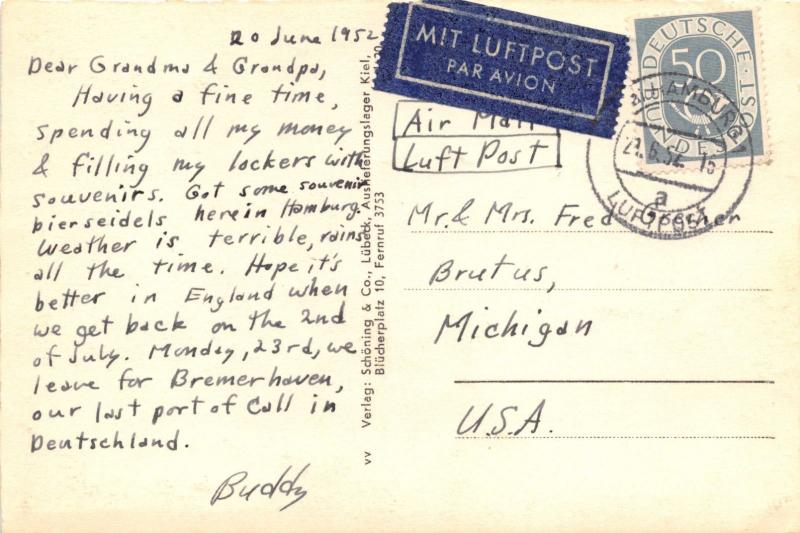 20 June 1952
Dear Grandma & Grandpa,
Having a fine time,
spending all my money
& filling my lockers with
souvenirs. Got some souvenir
bierseidels here in Hamburg.
Weather is terrible, rains
all the time. Hope it's
better in England when
we get back on the 2nd
of July. Monday, 23rd, we
leave for Bremerhaven,
our last port of Call in
Deutschland.
Buddy
vv Verlag: Schöning & Co., Lübeck, Auslieferungslager Kiel,
Blücherplatz 10, Fernruf 3753
MIT LUFTPOST
PAR AVION
Air Mail
Luft Post
DEUTSCHE
BUNDESPOST
50
HAMBURG
a
LUFTPOST
Mr. & Mrs. Fred
Brutus,
Michigan
U.S.A.